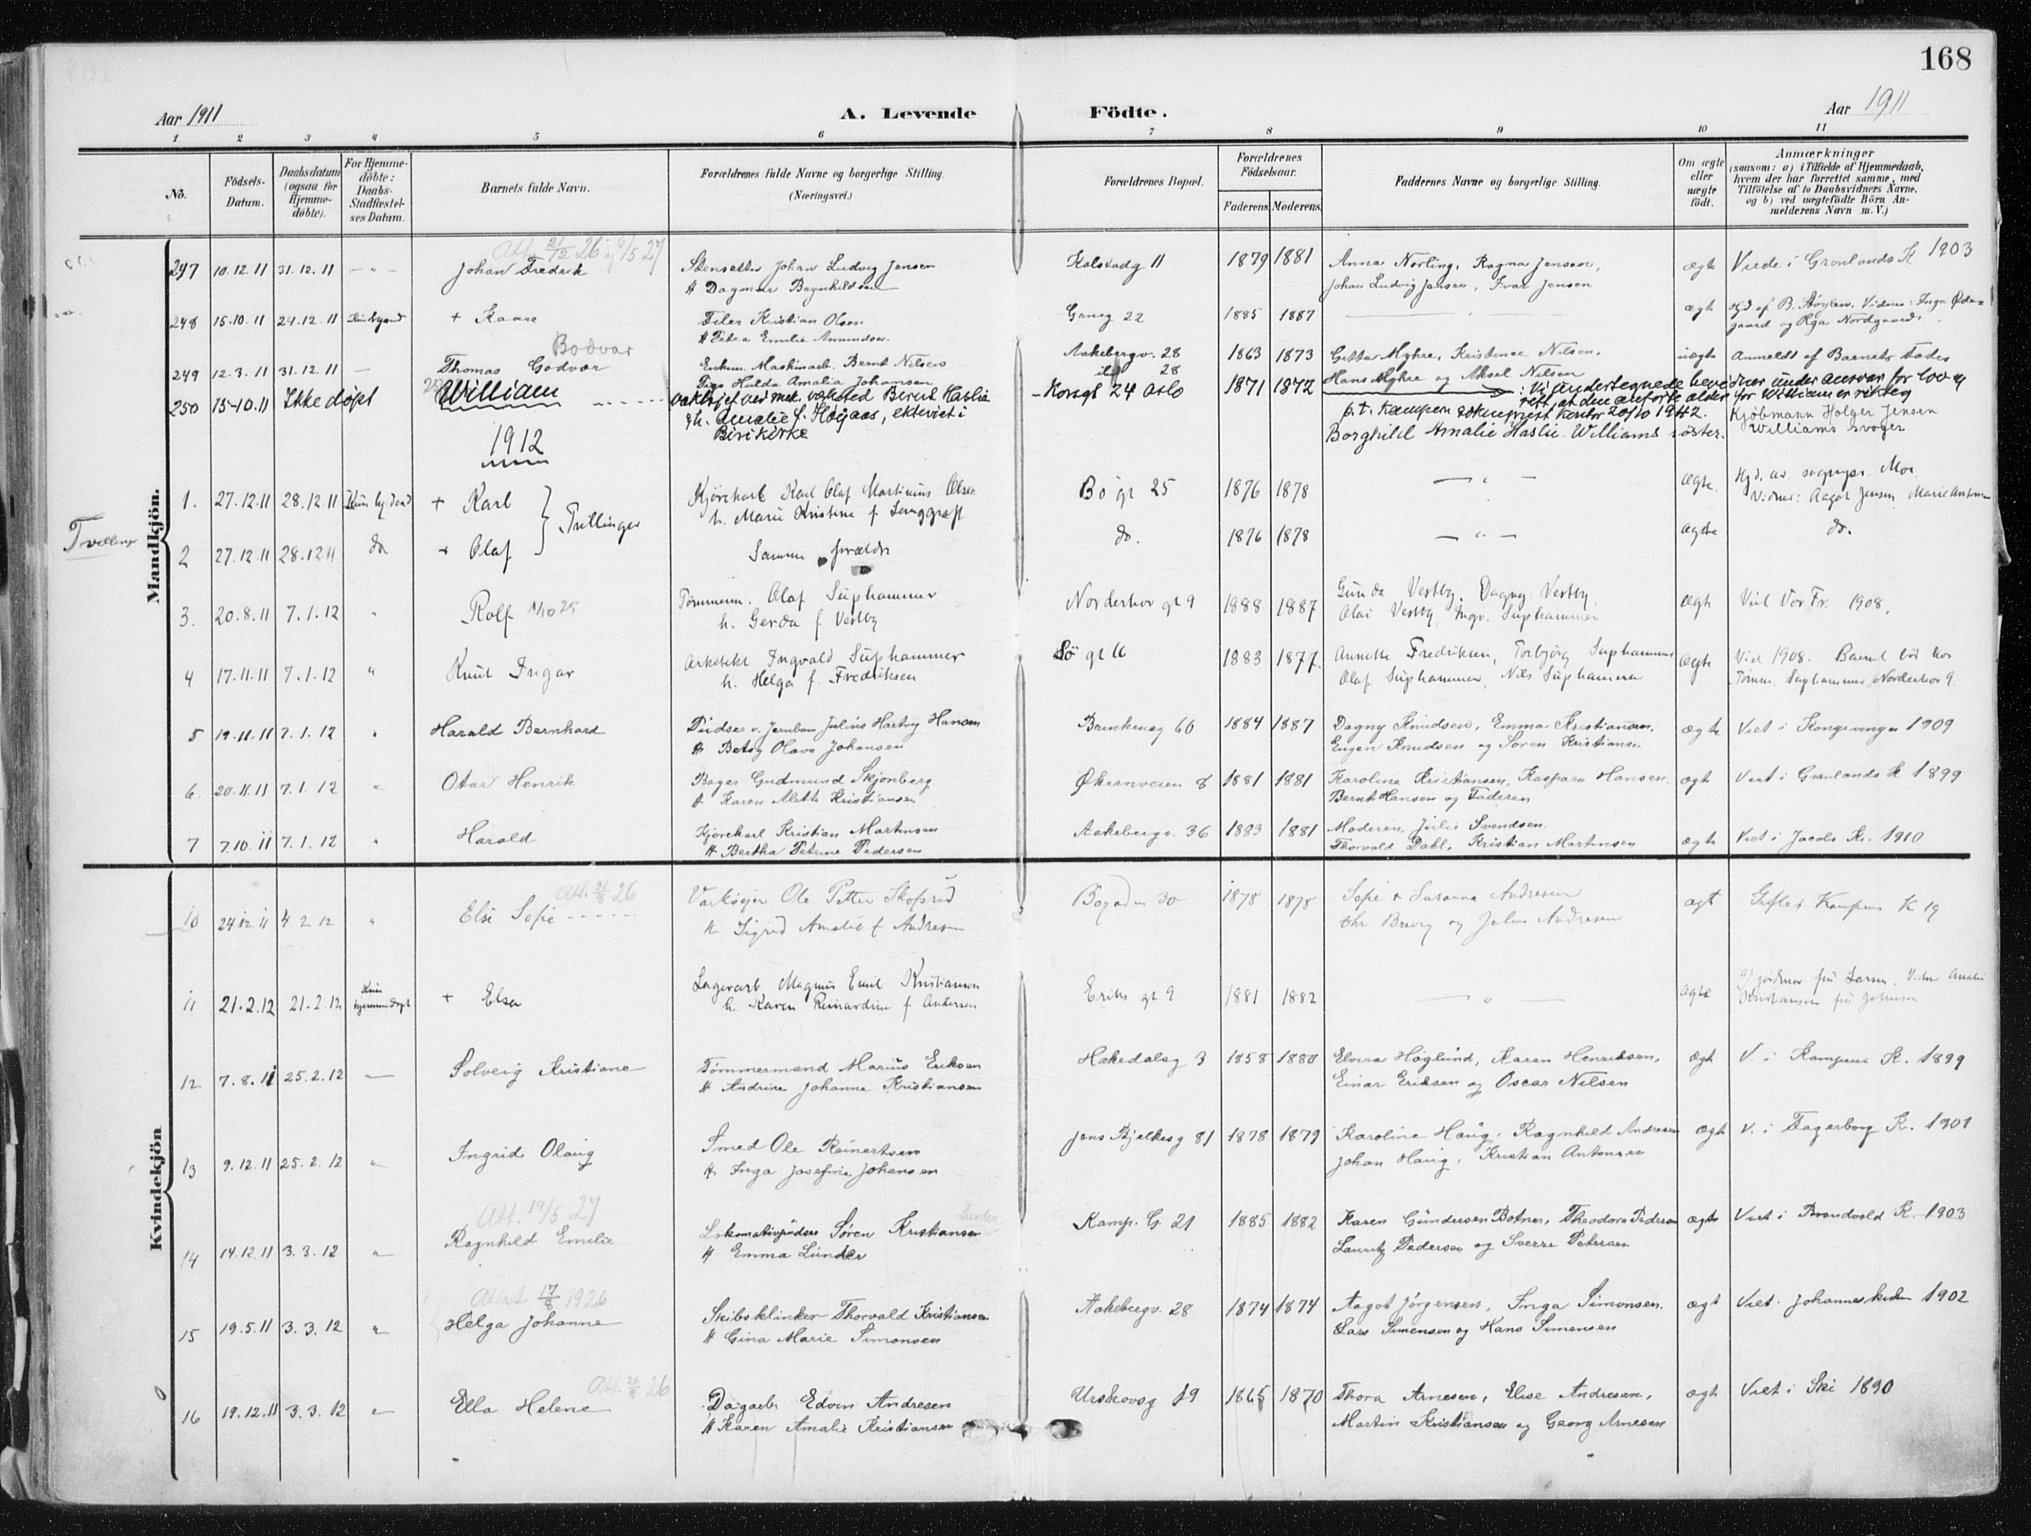 168
Aar 1911
A. Levende
Födte.
Aar 1911
1 2 3 4 5 6 7 8 9 10 11
No.
Födsels-
Datum.
Daabsdatum
(ogsaa for
Hjemme-
döbte).
For Hjemme-
döbte:
Daabs-
Stadfæstel-
ses Datum.
Barnets fulde Navn.
Forældrenes fulde Navne og borgerlige Stilling.
(Næringsvei.)
Forældrenes Bopæl.
Forældrenes
Födselsaar.
Faderens.
Moderens.
Faddernes Navne og borgerlige Stilling.
Om ægte
eller
uægte
födt.
Anmærkninger
(saasom: a) i Tilfælde af Hjemmedaab,
hvem der har forrettet samme, med
Tilföielse af to Daabsvidners Navne,
og b) ved uægtefödte Börn An-
melderens Navn m. V.)
Mandkjön.
247 10.12.11 31.12.11 Johan Fredrik
Stensetter Johan Ludvig Jensen
Kolstadg 11 1879 1881
Anna Norling, Ragna Jensen,
Johan Ludvig Jensen, Ivar Jensen
ægte Viede i Grønlands K 1903
248 15.10.11 24.12.11 + Kaare
Kristian Olsen
H Petra Emilie Amundsen
Grueg 22 1885 1887
ægte
249 12.3.11 31.12.11 Thomas Godvar
Bodvar
Maskinarb. Bernt Nilsen
Pige Hulda Amalia Johansen
Aakebergv. 28
28
1863 1873
Kristence Nilsen,
Hans Myhre og Aksel Nilsen
uægte Anmeldt af Barnets Fader
250 15-10.11 Ikke døpt William
ved mek. værksted Bernt Haslie
& h. Amalie f. Høgaas, ektevict i
Birikirke
Korsgt 24 Oslo 1871 1872
: Vi undertegnede bevidner under ansvar for lov og
rett, at den anførte alder for William er riktig
p.t. Kampen sokneprest kontor 20/10 1942.
Borghild Amalie Haslie. Williams søster.
Kjøbmann Holger Jensen
Williams svoger
1912
Tvillinger
1. 27.12.11 28.12.11 + Karl
Kjørekarl Karl Olaf Martinius Olsen
h. Marie Kristine f
Bøgt 25 1876 1878
ægte.
Vidner: Aagot Jensen, Marie Antonsen
2 27.12.11 28.12.11 do + Olaf
Samme forældre
do. 1876 1878
ægte do.
3. 20.8.11 7.1.12 Rolf 1/10 25
Tømmerm. Olaf Suphammer
h. Gerda f Vestby
Norderhov gt 9 1888 1887
Gunda Vestby, Dagny Vestby,
Olai Vestby, Ingv. Suphammer
ægte Viet Vor Fr. 1908,
4 17.11.11 7.1.12 Knut Ingar
Arkitekt Ingvald Suphammer
h. Helga f. Fredriksen
Bø gt 16 1883 1877.
Annette Fredriksen, Torbjørg Suphammer
Olaf Suphammer, Nils Suphammer
ægte Vid 1908. Barnet bor hos
Tømm. Suphammer, Norderhov 9.
5 19.11.11 7.1.12 Harald Bernhard
Pudser v. Jernban Julius Hartvig Hansen
H Betsy Olava Johansen
60 1884 1887
Dagny Knudsen, Emma Kristiansen,
Eugen Knudsen og Søren Kristiansen
ægte Viet i Kongsvinger 1909
6. 20.11.11 7.1.12 Otar Henrik
Bager Gudmund Skjønberg
H. Karen Mette Kristiansen
Økernveien 8 1881 1881
Karoline Kristiansen, Kaspara Hansen
Bernt Hansen og Faderen
ægte Viet i Grønlands K 1899
7 7.10.11 7.1.12 Harald
Kjørekarl Kristian Martinsen
H Bertha Petrine Pedersen
Aakebergv. 36 1883 1881
Moderen, Julie Svendsen.
Thorvald Dahl, Kristian Martinsen
ægte Viet i Jacobs K. 1910
Kvindekjön
10 24.12.11 4 2 12 Else Sofie
Ole Petter Skofsrud
h Sigrid Amalie f Andresen
Bogaden 30 1878 1878
Sofie & Susanna Andresen
Chr. Brevig og Julius Andresen
ægt Gifte i Kampens K 19
11 21.2.12 21.2.12 + Elsa
Lagerarb Magnus Emil Kristiansen
h. Karen Reinardine f Andersen
Eriks gt 9 1881 1882
ægte
12 7.8.11 25.2.12 Solveig Kristiane
Tømmermand Marius Eriksen
H Andrine Johanne Kristiansen
Hakedalsg 3 1858 1880
Elvira Høglund, Karen Henriksen,
Einar Eriksen og Oscar Nilsen
ægt V. i Kampens K. 1899
13 9.12.11 25.2.12 Ingrid Olaug
Smed Ole Reinertsen
H. Inga Josefine Johansen
Jens Bjelkesg 81 1878 1879
Karoline Haug, Ragnhild Andresen
Johan Haug, Kristian Antonsen
ægt V. i Fagerborg K. 1901
Att. 19/5 27
14 14.12.11 3.3.12 Ragnhild Emilie
Lokomotivpudser Søren Kristiansen
H Emma Lunder
Kamp. G. 21 1885 1882
Karen Gundersen Botner, Theodora Pedersen
Lauritz Pedersen og Sverre Petersen
ægte Viet i Brandvold K. 1903
Attest 17/8 1926
15 19.5.11 3.3.12 Helga Johanne
Skibsklinker Thorvald Kristiansen
H Gina Marie Simonsen
Aakebergv. 28 1874 1874
Aagot Jørgensen, Inga Simonsen,
Lars Simensen og Hans Simensen
ægt Viet. Johannes kirken 1902
16 19.12.11 3.3.12 Ella Helene
Dagarb. Edvin Andresen
H Karen Amalie Kristiansen
Urskovsg 19 1865 1870
Thora Arnesen, Elise Andresen,
Martin Kristiansen og Georg Arnesen
ægt Viet i Ski 1890